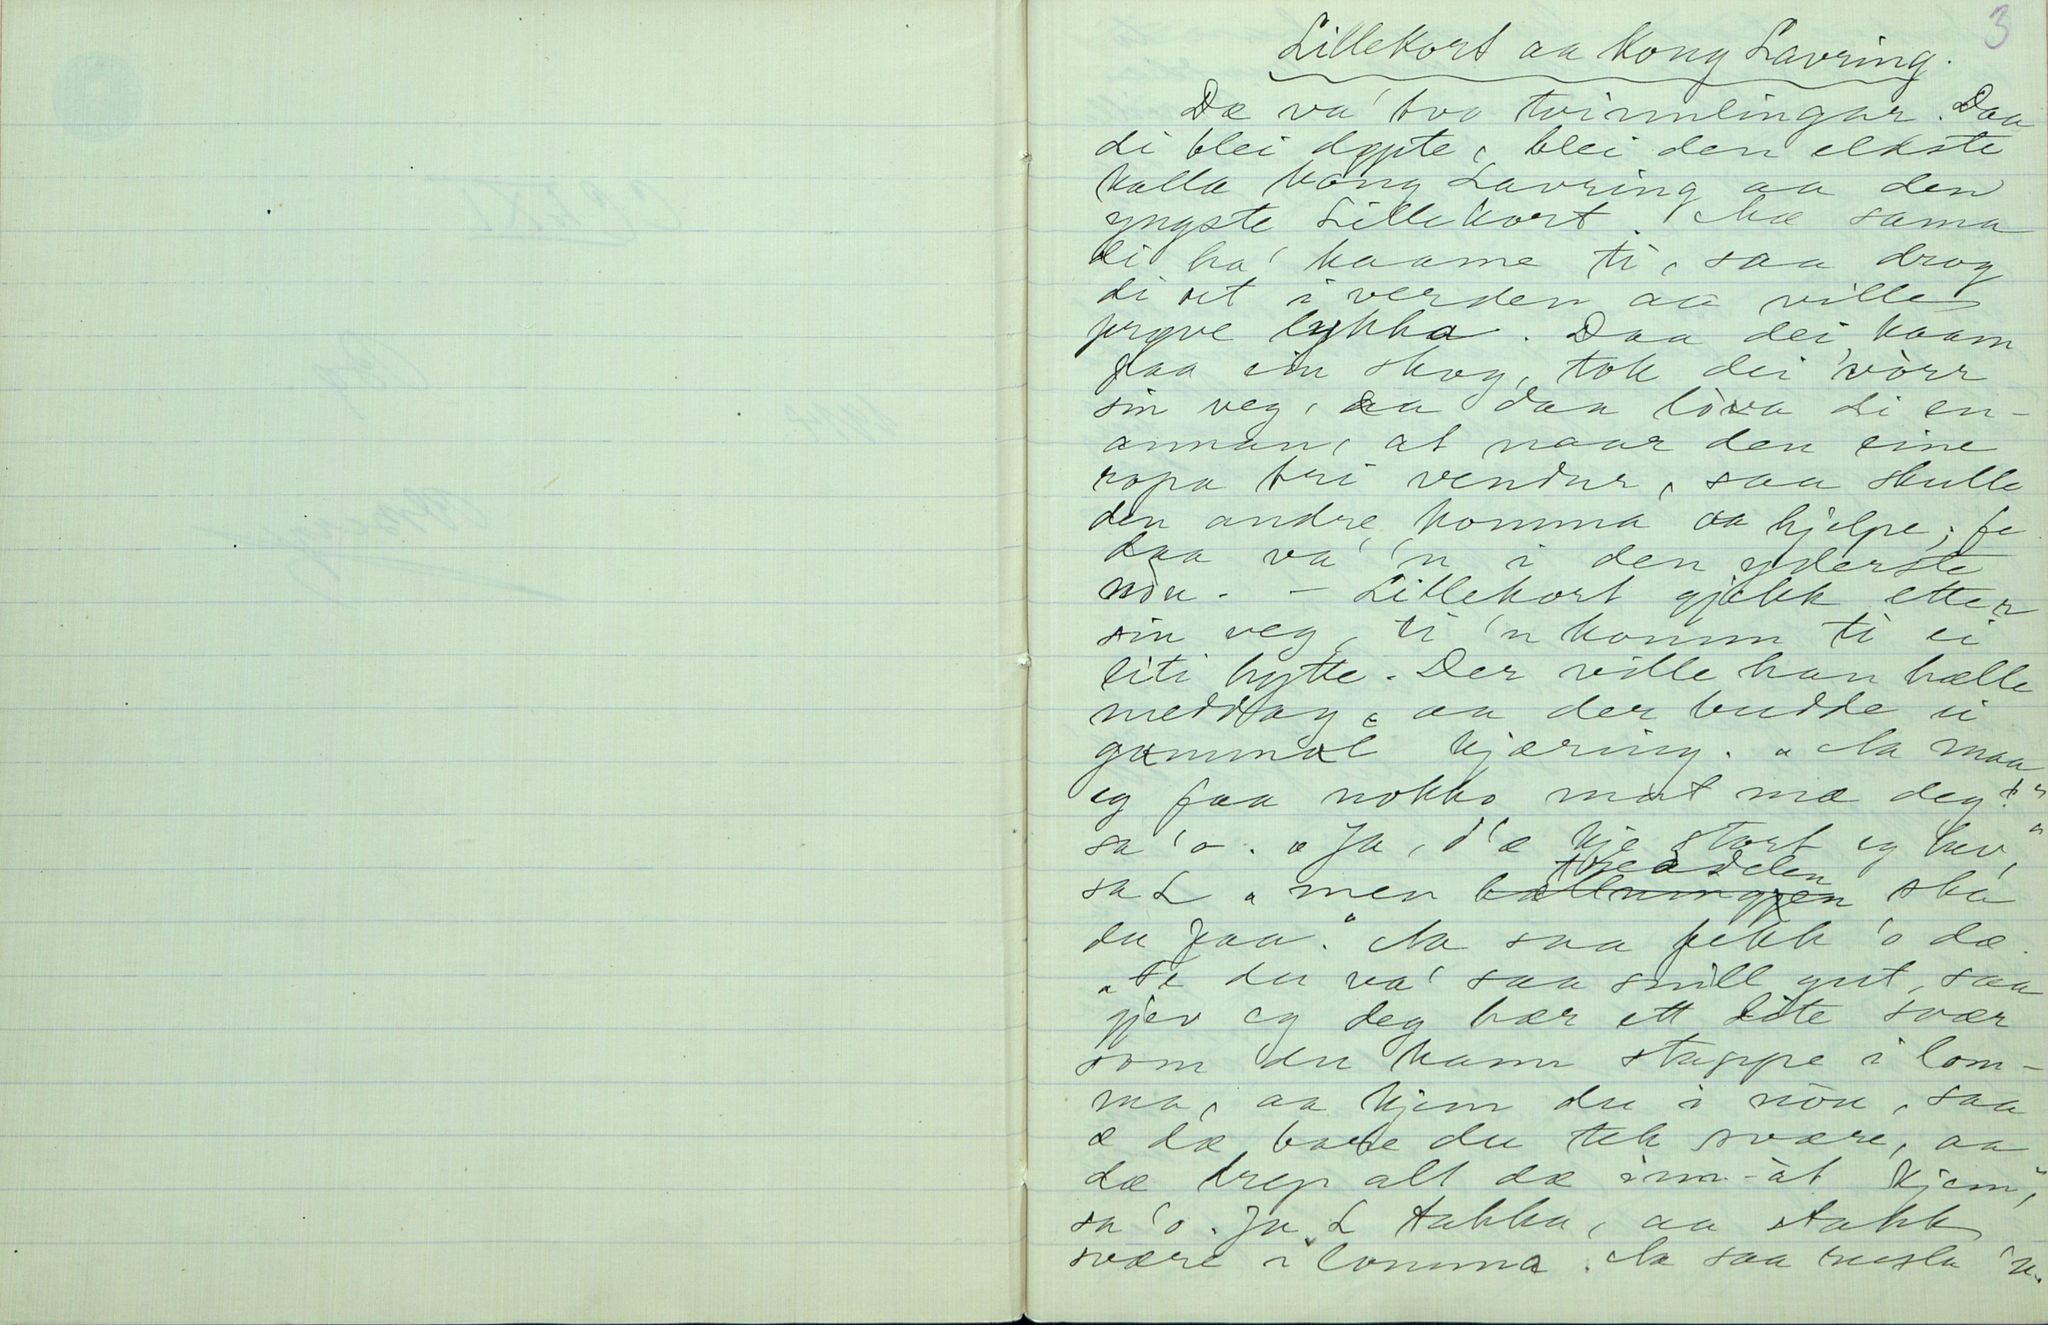 3
Lillekort aa Kong Lavring.
Dæ va' tvo tvinnlingar. Daa
di blei døpte, blei den eldste
kalla kong Lavring aa den
yngste Lillekort. Mæ sama
di ha' kaame ti, saa drog
di ut i verden aa ville
prøve lykka. Daa dei kaam
paa ein skog, tok dei 'vòrr
sin veg, aa daa lòva di en-
annan, at naar den eine
ropa tri vendur, saa skulle
den andre komma aa hjelpe; fe
daa va' 'n i den yderste
nòu. - Lillekort gjekk etter
sin veg, ti 'n komm ti ei
liti hytte. Der ville han hælle
meddag, aa der budde ei
gammal kjæring. „Na maa
eg faa nokko mat mæ deg!"
sa 'o. „Ja, d'æ kje stort eg hev,"
sa L „men treadelen ska
du faa." Na saa fekk 'o dæ.
„Fe du va' saa snill gut, saa
gjev eg deg hær ett lite svær
som du kann stappe i lom-
ma, aa kjem du i nòu, saa
æ dæ bare du tek svære, aa
dæ drep alt dæ inn-åt kjem,"
sa 'o. Ja L takka, aa stakk
svære i lomma. Na saa rusla 'n.